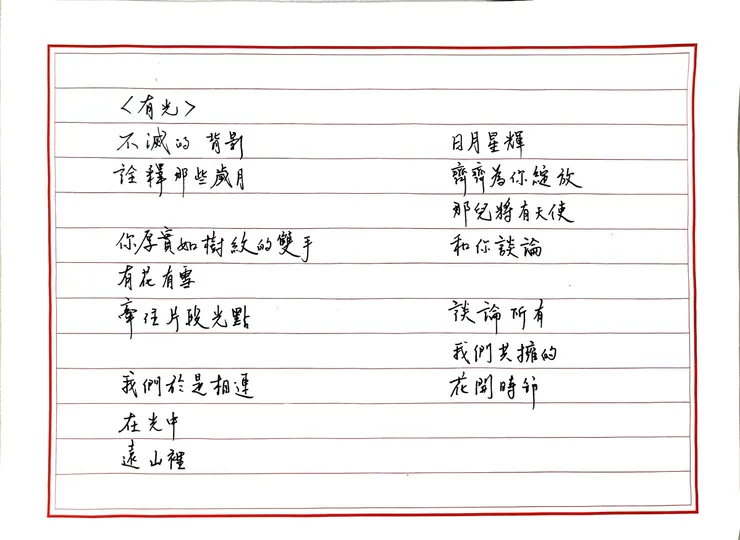 〈有光〉
不滅的背影
詮釋那些歲月
你厚實如樹紋的雙手
有花有雪
牽住片段光點
我們於是相連
在光中
遠山裡
日月星輝
齊齊為你綻放
那兒將有天使
和你談論
談論所有
我們共擁的
花開時節